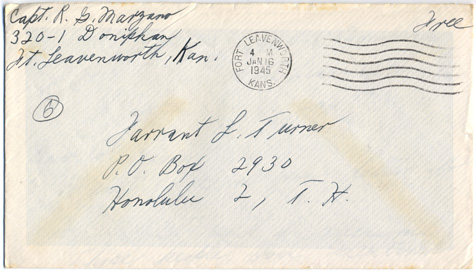 Capt. R. G. Marzano
320-1 Doniphan
Ft. Leavenworth, Kan.
Free
FORT LEAVENWORTH
4 M
JAN 16
1945
KANS.
6
Farrant L. Turner
P.O. Box 2930
Honolulu 2, T. H.